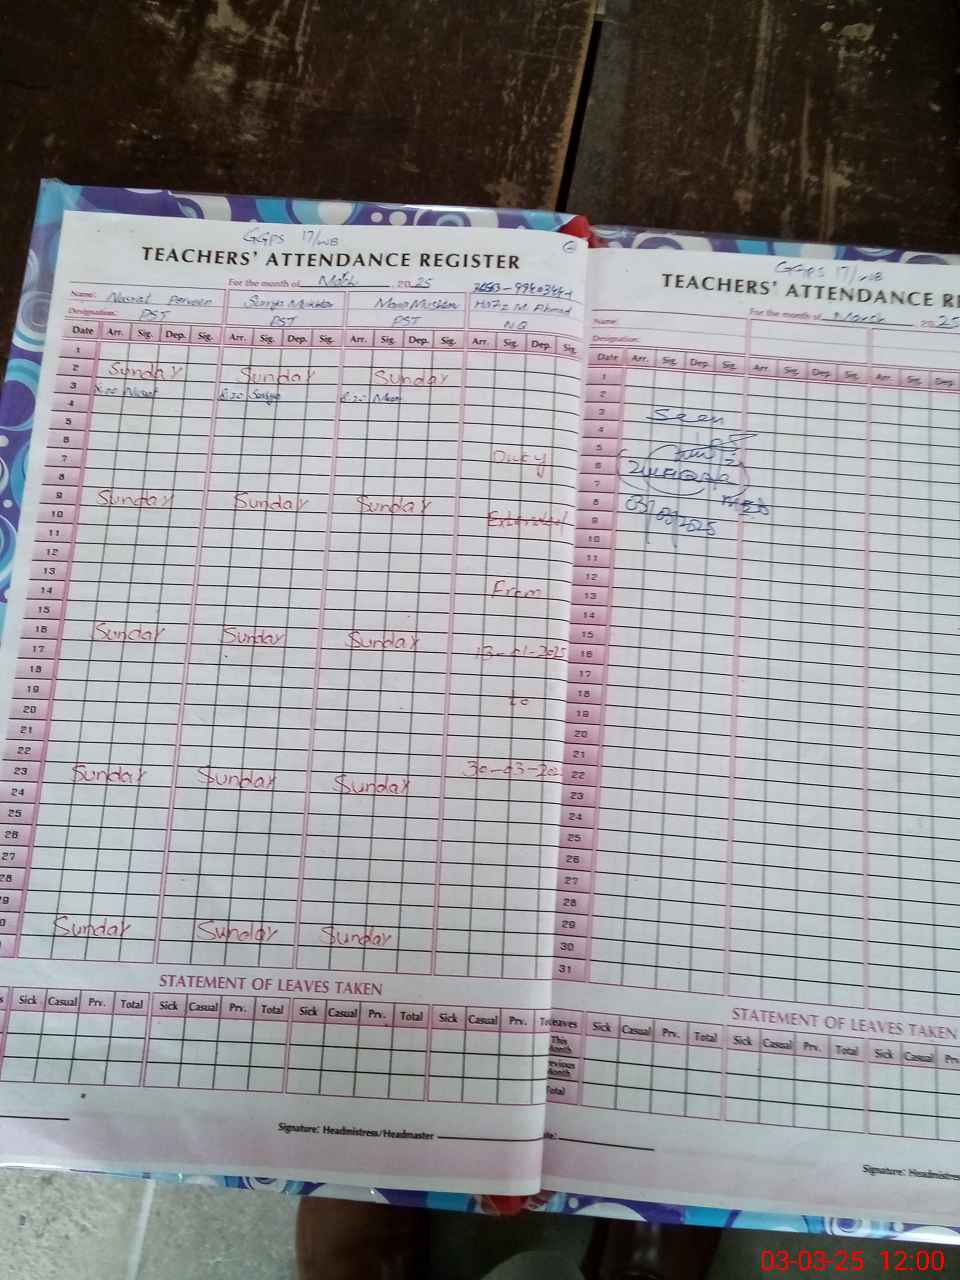 GGPS 17/WB
TEACHERS' ATTENDANCE REGISTER
For the month of March 2025
Name: Nusrat Perveen
Designation: PST PST PST NQ
Hafiz M. Ahmad
Date Arr. Sig. Dep. Sig. Arr. Sig. Dep. Sig. Arr. Sig. Dep. Sig. Arr. Sig. Dep. Sig.
1
2 Sunday Sunday Sunday
3 8:00 Nusrat 8:20 8:20
4
5
6
7 Duty
8
9 Sunday Sunday Sunday
10
11
12
13
14 From
15
16 Sunday Sunday Sunday
17 13-01-2025
18
19 to
20
21
22
23 Sunday Sunday Sunday 30-03-202
24
25
26
27
28
29
30 Sunday Sunday Sunday
STATEMENT OF LEAVES TAKEN
Sick Casual Prv. Total Sick Casual Prv. Total Sick Casual Prv. Total Sick Casual Prv.
Signature: Headmistress/Headmaster
GGPS 17/WB
TEACHERS' ATTENDANCE RE
For the month of March 2025
Name:
Designation:
Date Arr. Sig. Dep. Sig. Arr. Sig. Dep. Sig. Arr. Sig. Dep.
1
2
3 Seen
4
5
6
7
8 03/03/2025
9
10
11
12
13
14
15
16
17
18
19
20
21
22
23
24
25
26
27
28
29
30
31
STATEMENT OF LEAVES TAKEN
Leaves Sick Casual Prv. Total Sick Casual Prv. Total Sick Casual
This Month
Previous Month
Total
Signature: Headmistress
03-03-25 12:00